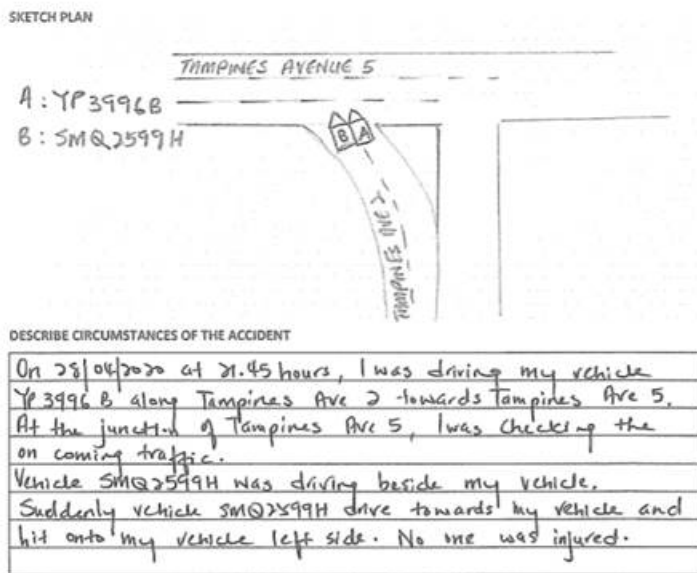 SKETCH PLAN
TAMPINES AVENUE 5
A: YP3996B
B: SMQ2599H
B A
TAMPINES AVE 2
DESCRIBE CIRCUMSTANCES OF THE ACCIDENT
On 28/04/2020 at 21.45 hours, I was driving my vehicle
YP 3996 B along Tampines Ave 2 towards Tampines Ave 5.
At the junction of Tampines Ave 5, I was checking the
on coming traffic.
Vehicle SMQ2599H was driving beside my vehicle.
Suddenly vehicle SMQ2599H drive towards my vehicle and
hit onto my vehicle left side. No one was injured.